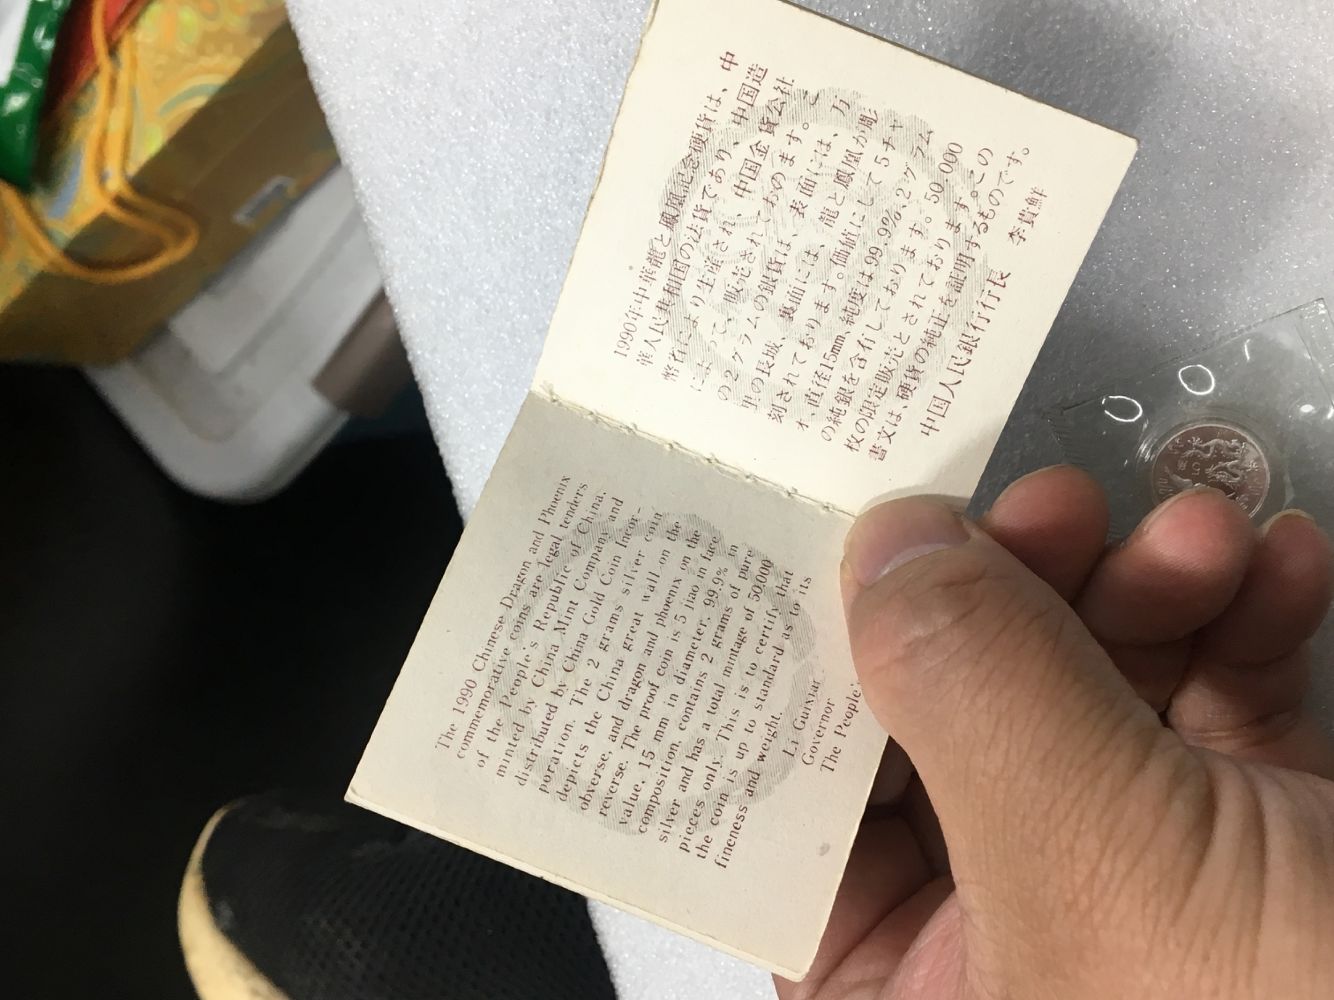 1990年中華龍と鳳凰記念硬貨は、中
華人民共和国の法貨であり、中国造
幣石により生産され、中国金貨公社
によって、販売されてものます。
の2グラムの銀貨は、表面には、万
里の長城、裏面には、龍と鳳凰が彫
刻されております。価値にして5チャ
オ、直径15mm、純度は99.9%、2グラム
の純銀を含有しております。50 000
枚の限定販売とされております。この
書文は、硬貨の純正を証明するものです。
中国人民銀行行長 李貴鮮
The 1990 Chinese Dragon and Phoenix
commemorative coins are legal tenders
of the People's Republic of China,
minted by China Mint Company and
distributed by China Gold Coin Incor-
poration. The 2 grams silver coin
depicts the China great wall on the
obverse, and dragon and phoenix on the
reverse. The proof coin is 5 jiao in face
value, 15 mm in diameter, 99.9% in
composition, contains 2 grams of pure
silver and has a total mintage of 50,000
pieces only. This is to certify that
the coin is up to standard as to its
fineness and weight.
Li Guixian
Governor
The People
5